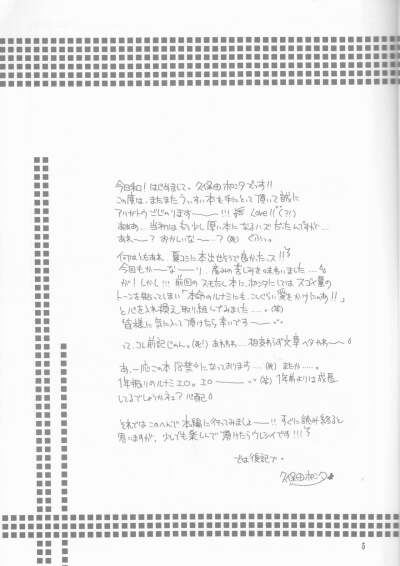 今日和!はじめまして。久保田ホンタです!!
この度は、またまたうっすい本を手にとって頂いて誠に
アリガトウございます〜〜!!! Love!!(?!)
ああぁ…当初はもう少し厚い本になるハズだったんですが…
あれ〜?おかしいな〜…?(死) ぐふっ。
何はともあれ、夏コミに本出せそうで良かったっス!!
今回もか〜な〜り、産みの苦しみを味わいました…
が!しかし!!!前回のスモたし本に、ホンタにしてはスゴイ量の
トーンを貼ってしまい「本命のルナミにも、こんぐらい愛をかけたのあ!!」
と心を入れ換え取り組んでみました…。(笑)
皆様に気に入って頂けたら幸いです〜
って、コレ前記じゃん。(死!) あわわわ…相変わらず文章ヘタね〜
あ、一応この本18禁になっております…。(死) またか…。
1年振りのルナミエロ。エロ〜 (殴) 1年前よりは成長
してるでしょうかネェ?心配
それではこのへんで本編に行ってみましょ〜!!すぐに読み終ると
思いますが、少しでも楽しんで頂けたらウレシイです!!!
では後記で。
久保田ホンタ
5